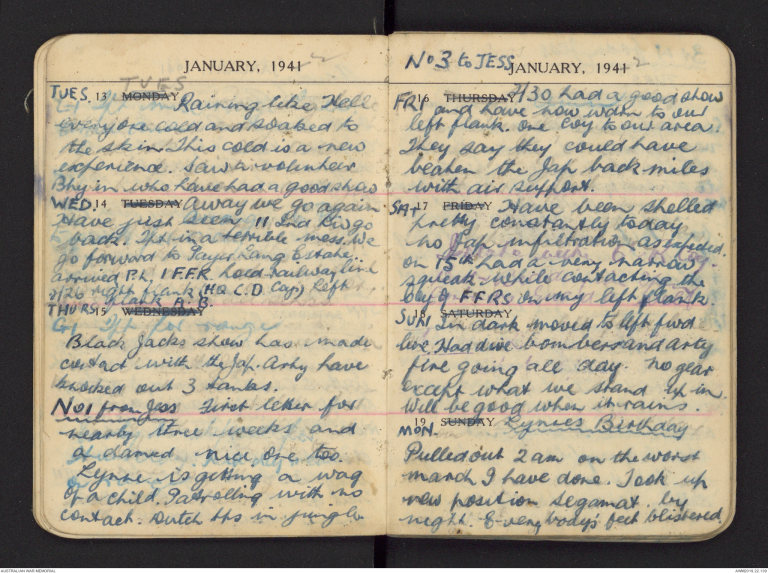 JANUARY, 1941 2
TUES
TUES, 13 MONDAY Raining like Hell
everyone cold and soaked to
the skin. This cold is a new
experience. Saw a volunteer
Bty in who have had a good show
WED. 14 TUESDAY Away we go again
Have just seen 11 2nd go
back. in a terrible mess. We
go forward to Estate,
arrived P.K. 1 F.F.R. hold railway line
2/26 right flank (HQ C.D Cap) Left
flank A.B.
THURS 15 WEDNESDAY
Black Jacks show has made
contact with the Jap. Arty have
knocked out 3 tanks.
No 1 from Jess First letter for
nearby three weeks and
a damed nice one too.
Lynne is getting a wag
of a child. Patrolling with no
contact. Dutch tps in jungle
No 3 to JESS
JANUARY, 1941 2
FRI 16 THURSDAY 2/30 had a good show
and have now wdrn to our
left flank. One coy to our area.
They say they could have
beaten the Jap back miles
with air support.
SAT 17 FRIDAY Have been shelled
pretty constantly today
no Jap infiltration as expected.
on 15th had a very narrow
squeak while contacting the
coy of F F R's on my left flank
SUN 18 SATURDAY
In dark moved to left fwd
live Had dive bombers and arty
fire going all day. No gear
except what we stand up in
will be good when it rains.
MON 19 SUNDAY Lynies Birthday
Pulled out 2 am on the worst
march I have done. Took up
new position Segamat by
night. Everybody's feet blistered.
AUSTRALIAN WAR MEMORIAL